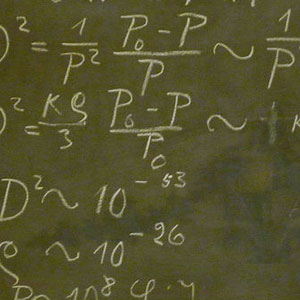 )² = 1/P² (P₀ − P)/P ~ 1/P
)² = Kϱ/3 (P₀ − P)/P₀ ~
D² ~ 10⁻⁵³
ϱ ~ 10⁻²⁶
10⁸